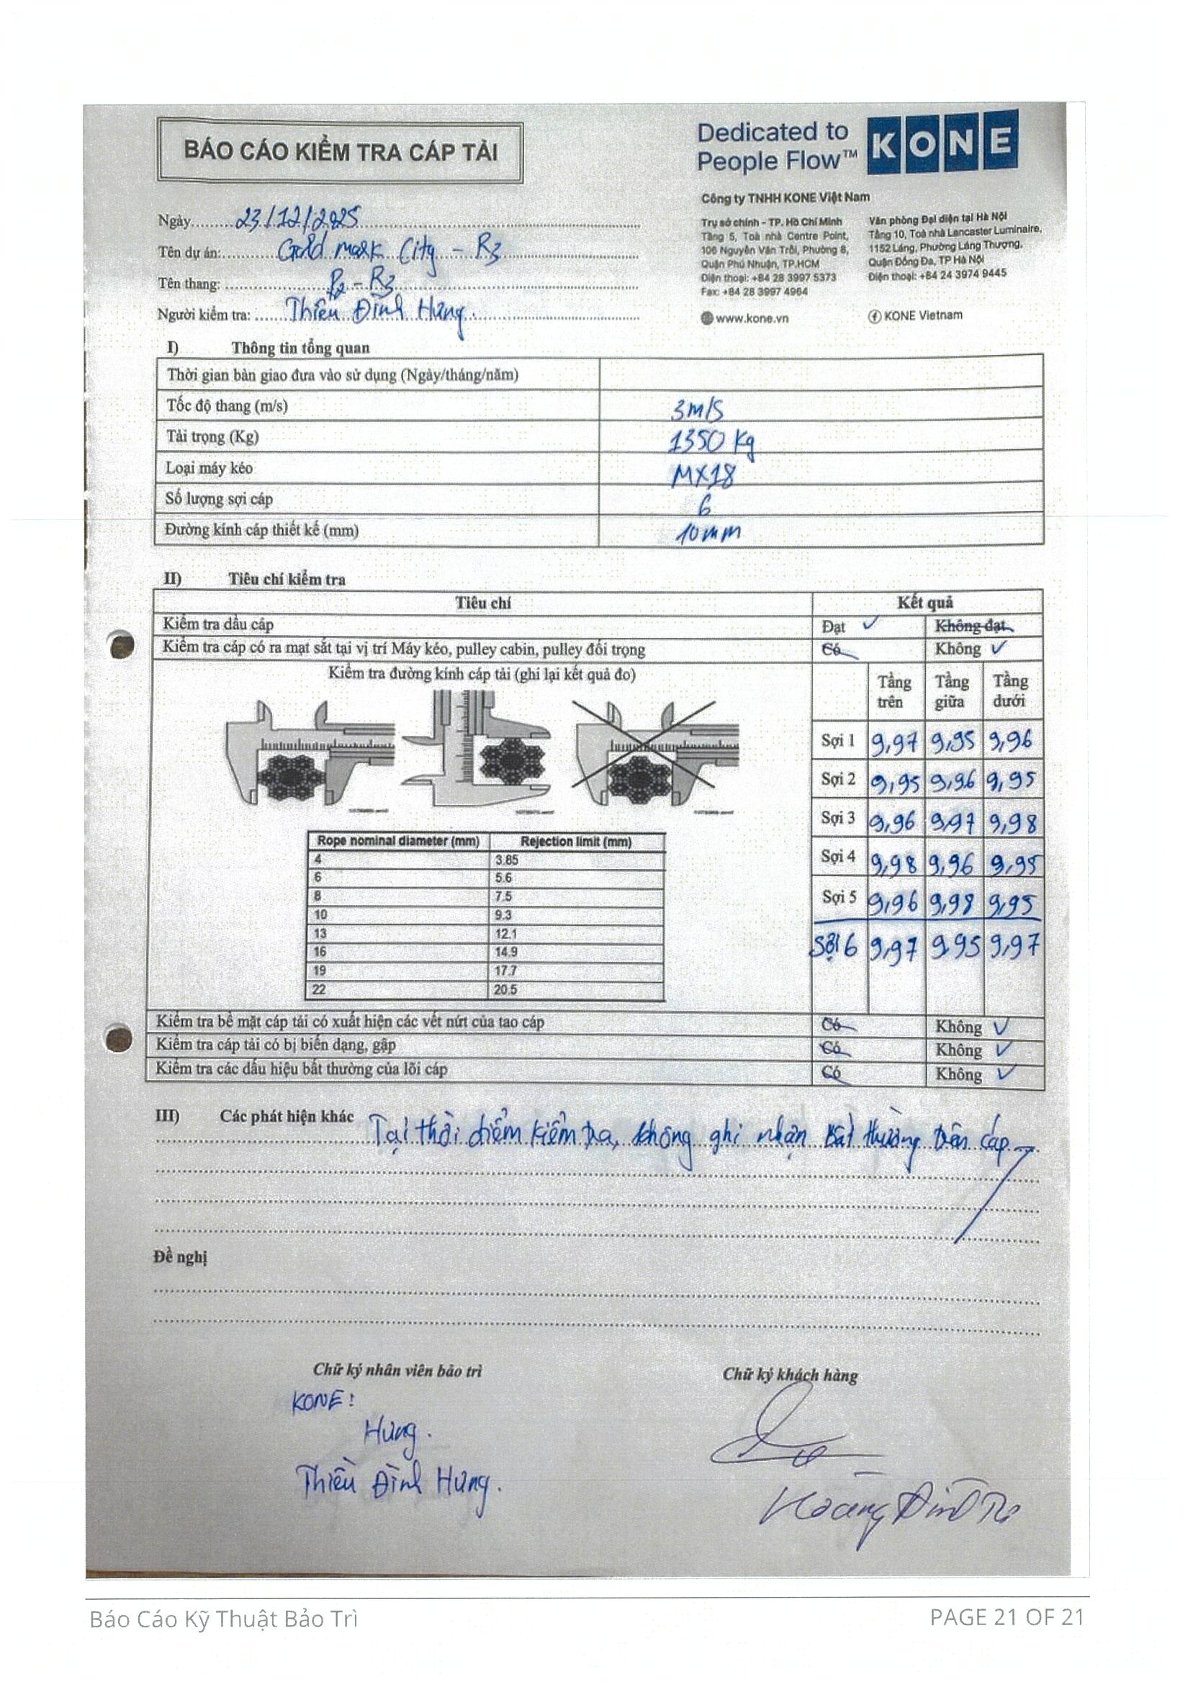 BÁO CÁO KIỂM TRA CÁP TẢI
Dedicated to
People Flow™
KONE
Công ty TNHH KONE Việt Nam
Trụ sở chính - TP. Hồ Chí Minh
Tầng 5, Toà nhà Centre Point,
106 Nguyễn Văn Trỗi, Phường 8,
Quận Phú Nhuận, TP.HCM
Điện thoại: +84 28 3997 5373
Fax: +84 28 3997 4964
Văn phòng Đại diện tại Hà Nội
Tầng 10, Toà nhà Lancaster Luminaire,
1152 Láng, Phường Láng Thượng,
Quận Đống Đa, TP Hà Nội
Điện thoại: +84 24 3974 9445
www.kone.vn
KONE Vietnam
Ngày 23/12/2025
Tên dự án: Gold mark City - R3
Tên thang: P2 - R3
Người kiểm tra: Thiều Đình Hưng
I) Thông tin tổng quan
Thời gian bàn giao đưa vào sử dụng (Ngày/tháng/năm)
Tốc độ thang (m/s) 3m/s
Tải trọng (Kg) 1350 kg
Loại máy kéo MX18
Số lượng sợi cáp 6
Đường kính cáp thiết kế (mm) 10mm
II) Tiêu chí kiểm tra
Tiêu chí Kết quả
Kiểm tra dầu cáp Đạt ✓ Không đạt
Kiểm tra cáp có ra mạt sắt tại vị trí Máy kéo, pulley cabin, pulley đối trọng Có Không ✓
Kiểm tra đường kính cáp tải (ghi lại kết quả đo)
Tầng trên Tầng giữa Tầng dưới
Sợi 1 9,97 9,95 9,96
Sợi 2 9,95 9,96 9,95
Sợi 3 9,96 9,97 9,98
Sợi 4 9,98 9,96 9,95
Sợi 5 9,96 9,98 9,95
Sợi 6 9,97 9,95 9,97
Rope nominal diameter (mm) Rejection limit (mm)
4 3.85
6 5.6
8 7.5
10 9.3
13 12.1
16 14.9
19 17.7
22 20.5
Kiểm tra bề mặt cáp tải có xuất hiện các vết nứt của tao cáp Có Không ✓
Kiểm tra cáp tải có bị biến dạng, gập Có Không ✓
Kiểm tra các dấu hiệu bất thường của lõi cáp Có Không ✓
III) Các phát hiện khác Tại thời điểm kiểm tra, không ghi nhận bất thường trên cáp
Đề nghị
Chữ ký nhân viên bảo trì
Chữ ký khách hàng
KONE:
Hưng.
Thiều Đình Hưng.
Hoàng Đình
Báo Cáo Kỹ Thuật Bảo Trì
PAGE 21 OF 21